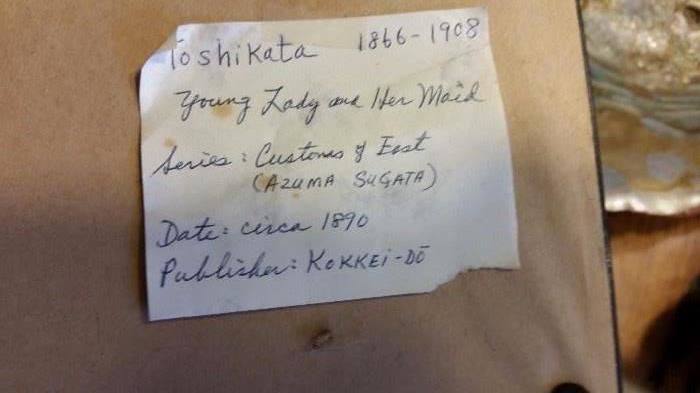 Toshikata 1866-1908
Young Lady and Her Maid
Series: Customs of East
(AZUMA SUGATA)
Date: circa 1890
Publisher: KOKKEI-DŌ